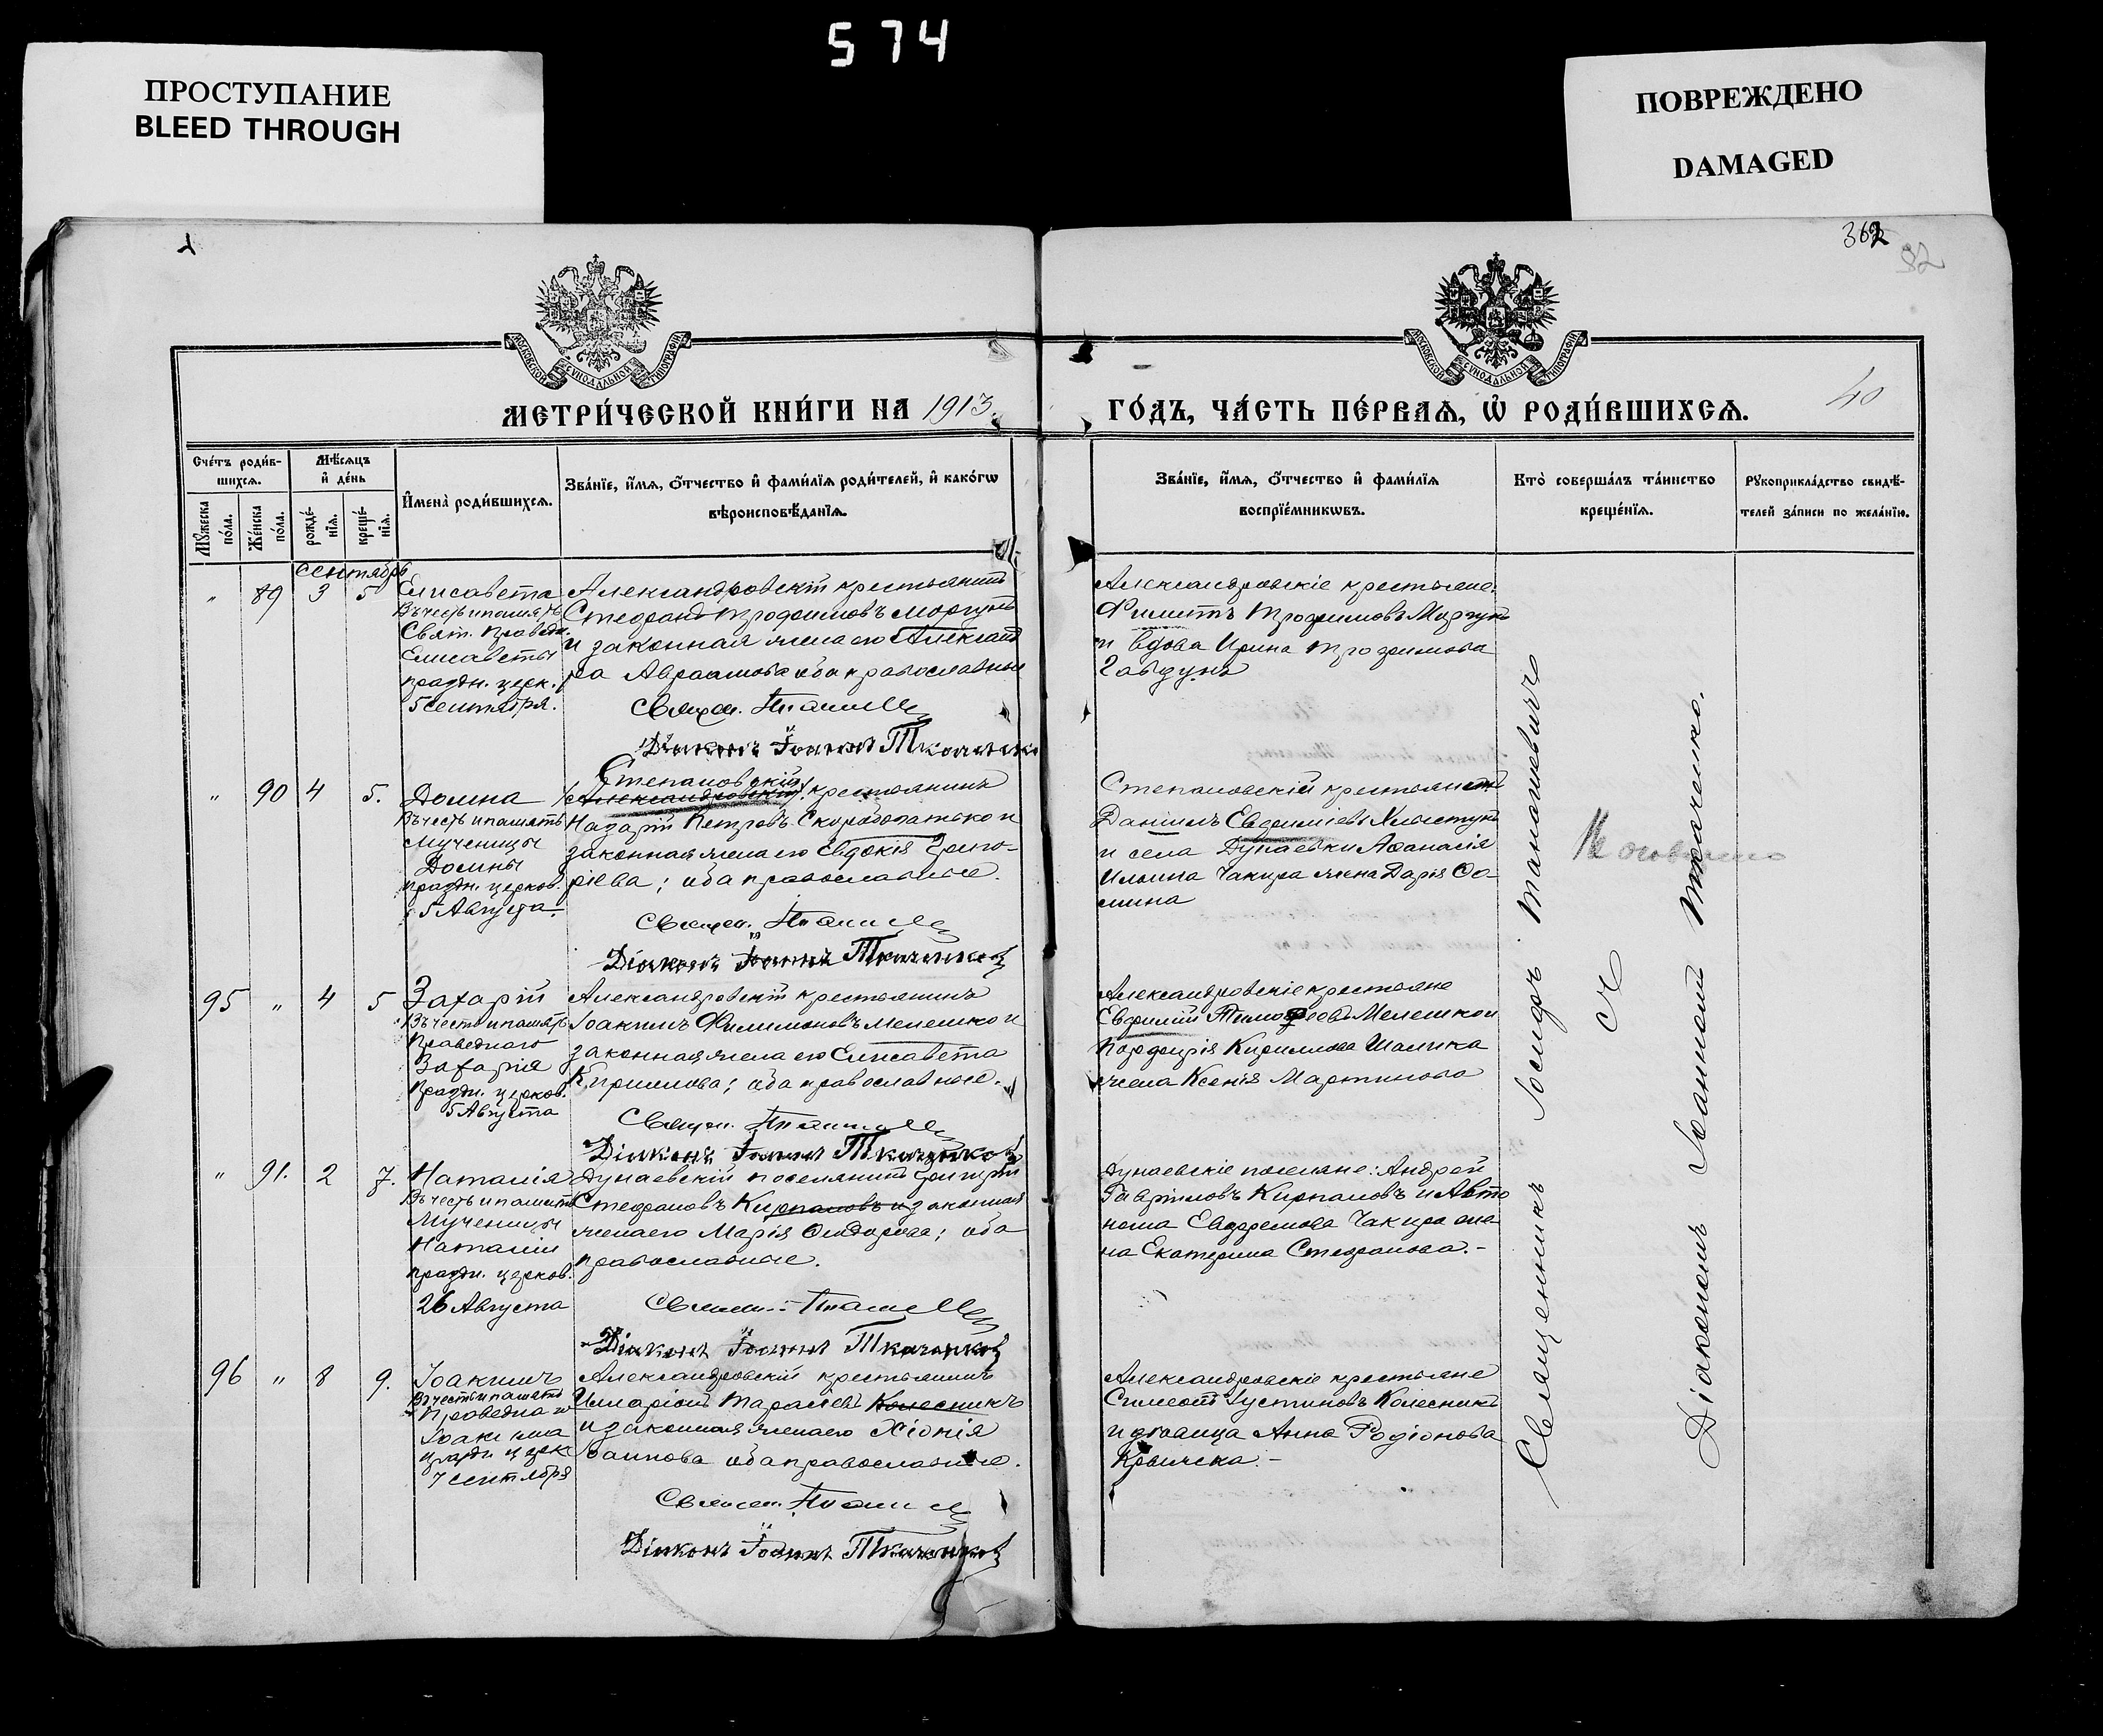 574
ПРОСТУПАНИЕ
BLEED THROUGH
ПОВРЕЖДЕНО
DAMAGED
362
92
МОСКОВСКОЙ СѴНОДАЛЬНОЙ ТИПОГРАФІИ
МОСКОВСКОЙ СѴНОДАЛЬНОЙ ТИПОГРАФІИ
МЕТРИ́ЧЕСКОЙ КНИ́ГИ НА 1913
ГО́ДЪ, ЧА́СТЬ ПЕ́РВАѦ, Ѡ҆ РОДИ́ВШИХСѦ.
40
Сче́тъ роди́в-
шихсѧ.
Мѣ́сѧцъ
и҆ де́нь
Мꙋ́жеска
по́ла.
Же́нска
по́ла.
рожде́-
нїѧ.
креще́-
нїѧ.
И҆мена̀ роди́вшихсѧ.
Зва́нїе, и҆́мѧ, о҆́тчество и҆ фами́лїѧ роди́телей, и҆ како́гѡ
вѣроисповѣ́данїѧ.
Зва́нїе, и҆́мѧ, о҆́тчество и҆ фами́лїѧ
воспрїе́мникѡвъ.
Кто̀ соверша́лъ та́инство
креще́нїѧ.
Рꙋкоприкла́дство свидѣ́-
телей за́писи по жела́нїю.
сентябрь
" 89 3 5 Елисавета
Въ честь и память
Свят. праведн.
Елисаветы
праздн. церк.
5 сентября.
Александровскій крестьянинъ
Стефанъ Трофимовъ Моргунъ
и законная жена его Александ
ра Авраамова оба православные
Священ.
Діаконъ Іоаннъ Ткаченко
Александровскіе крестьяне:
Филиппъ Трофимовъ Моргунъ
и вдова Ирина Трофимова
" 90 4 5. Домна
Въ честь и память
Мученицы
Домны
праздн. церков.
5 Августа.
Степановскій
Александровскій крестьянинъ
Назарій Петровъ Скоробогатько и
законная жена его Евдокія Григо-
ріева; оба православные.
Священ.
Діаконъ Іоаннъ Ткаченко
Степановскій крестьянинъ
Даніилъ Евфиміевъ Хлыстунъ
и села Дунаевки Аѳанасія
Ильина Чакира жена Дарія Ѳо-
мина
95 " 4 5 Захарій
Въ честь и память
Праведнаго
Захарія
Праздн. церков.
5 Августа
Александровскій крестьянинъ
Іоакимъ Филимоновъ Мелешко и
законная жена его Елисавета
Кириллова; оба православные.
Священ.
Діаконъ Іоаннъ Ткаченко
Александровскіе крестьяне
Евфимій Тимофеевъ Мелешко и
Порфирія Кириллова Шалика
жена Ксенія Мартинова
" 91. 2 7. Наталія
Въ честь и память
Мученицы
Наталіи
праздн. церков.
26 Августа
Дунаевскій поселянинъ Григорій
Стефановъ Кирпановъ и законная
жена его Марія Ѳидорова; оба
православные.
Священ.
Діаконъ Іоаннъ Ткаченко
Дунаевскіе поселяне: Андрей
Гавриловъ Кирпановъ и Авто
нома Евфремова Чакира же
на Екатерина Стефанова.-
96 " 8 9. Іоакимъ
Въ честь и память
Праведнаго
Іоакима
праздн. церк.
7 сентября
Александровскій крестьянинъ
Иларіонъ Тарасіевъ Колесникъ
и законная жена его Хіонія
оба православные.
Священ.
Діаконъ Іоаннъ Ткаченко
Александровскіе крестьяне
Симеонъ Іустиновъ Колесникъ
и дѣвица Анна Родіонова
Священникъ Іосифъ Танашевичъ
съ
Діакономъ Іоанномъ Ткаченко.